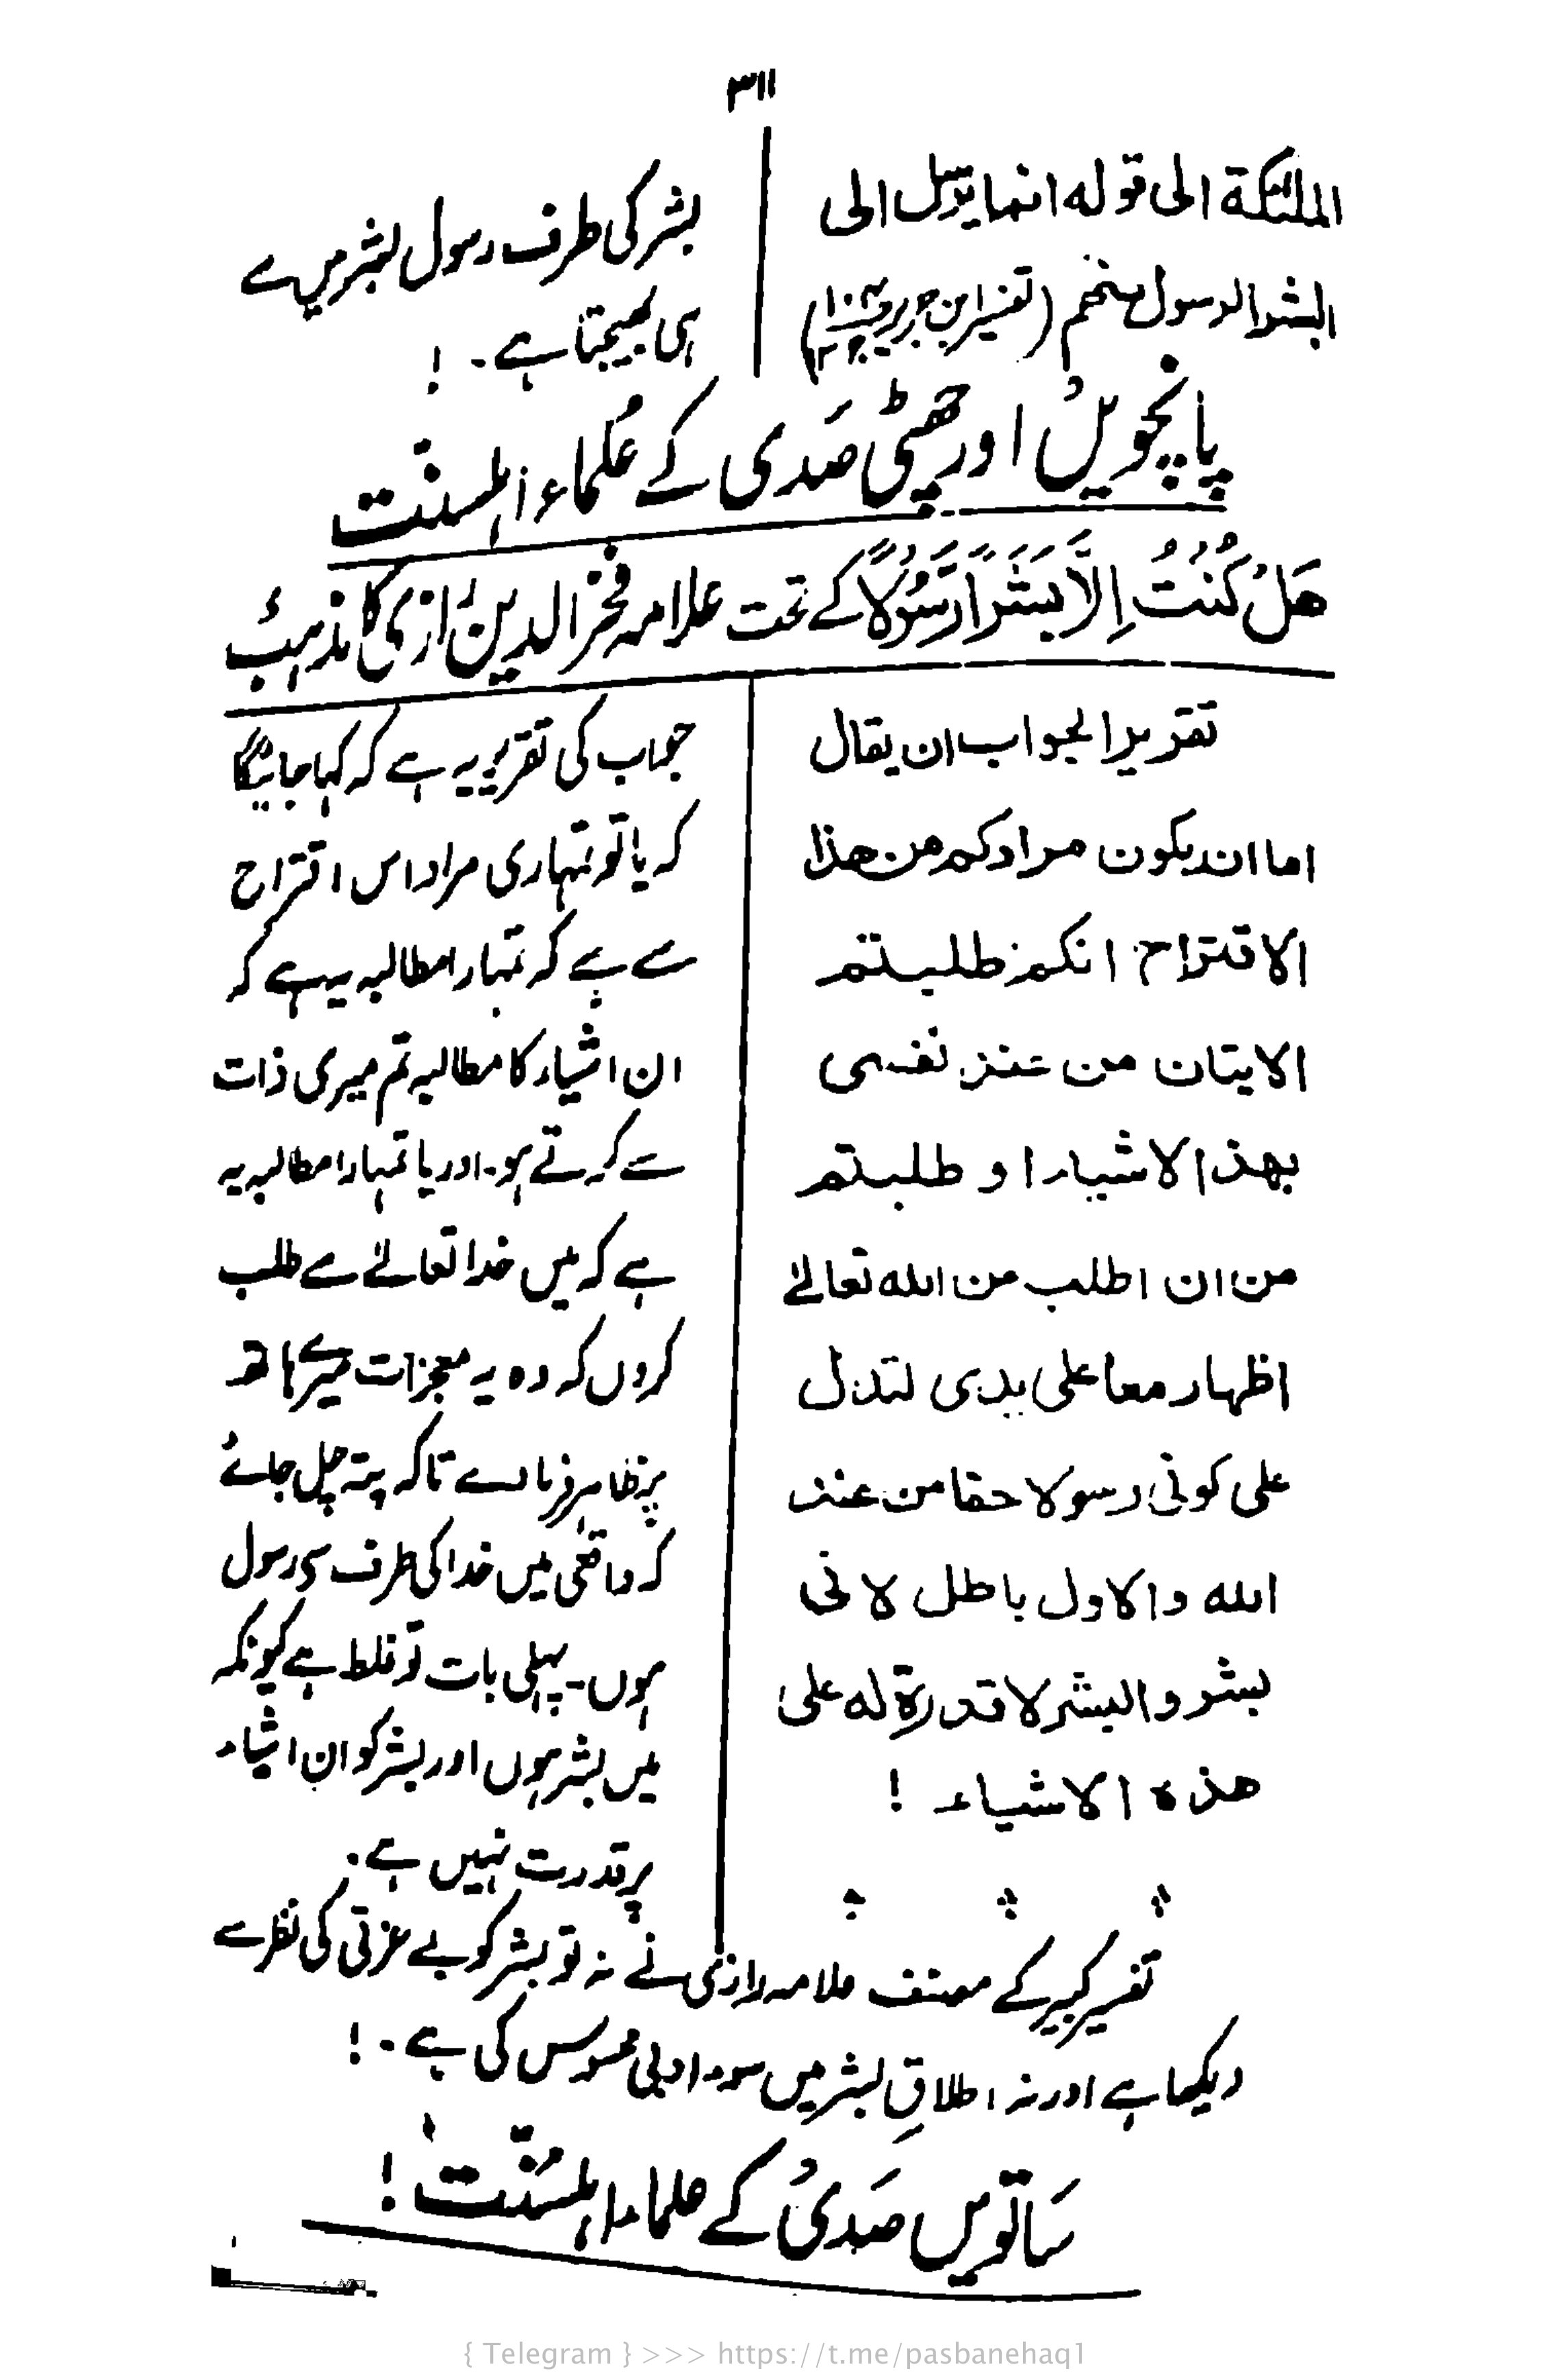 ۳۱۱
الملئكة الى قوله انما يرسل الى
البشر الرسول منهم (تفسير ابن جرير
بشر کی طرف رسول بشر میں سے
ہی بھیجتا ہے۔ !
پانچویں اور چھٹی صَدی کے عُلماء اہلسنّت
هَلْ كُنْتُ اِلَّا بَشَرًا رَسُوْلًا کے تحت علامہ فخر الدین رازی کا مذہب
تقرير الجواب ان يقال
اما ان يكون مرادكم من هذا
الاقتراح انكم طلبتم
الايتان من عند نفسى
بهذ الاشياء او طلبتم
من ان اطلب من الله تعالىٰ
اظهار معا على يدى لتدل
على كونى رسولا حقا من عند
الله والاول باطل لانى
بشر والبشر لا قدرة له على
هذه الاشياء !
جواب کی تقریر یہ ہے کہ کہا جائیگا
کہ یا تو تمہاری مراد اس اقتراح
سے ہے کہ تمہارا مطالبہ یہ ہے کہ
ان اشیاء کا مطالبہ تم میری ذات
سے کرتے ہو۔ اور یا تمہارا مطالبہ یہ
ہے کہ میں خدا تعالےٰ سے طلب
کروں کہ وہ یہ معجزات میرے ہاتھ
پر ظاہر فرمادے تاکہ پتہ چل جائے
کہ واقعی میں خدا کی طرف سے رسول
ہوں۔ پہلی بات تو غلط ہے کیونکہ
میں بشر ہوں اور بشر کو ان اشیاء
پر قدرت نہیں ہے۔
تفسیر کبیر کے مصنف علامہ رازی نے نہ تو بشر کو بے عزتی کی نظر سے
دیکھا ہے اور نہ اطلاقِ بشر میں سوء ادبی محسوس کی ہے۔ !
سَاتویں صَدی کے علماء اہلسنّت !
{ Telegram } >>> https://t.me/pasbanehaq1